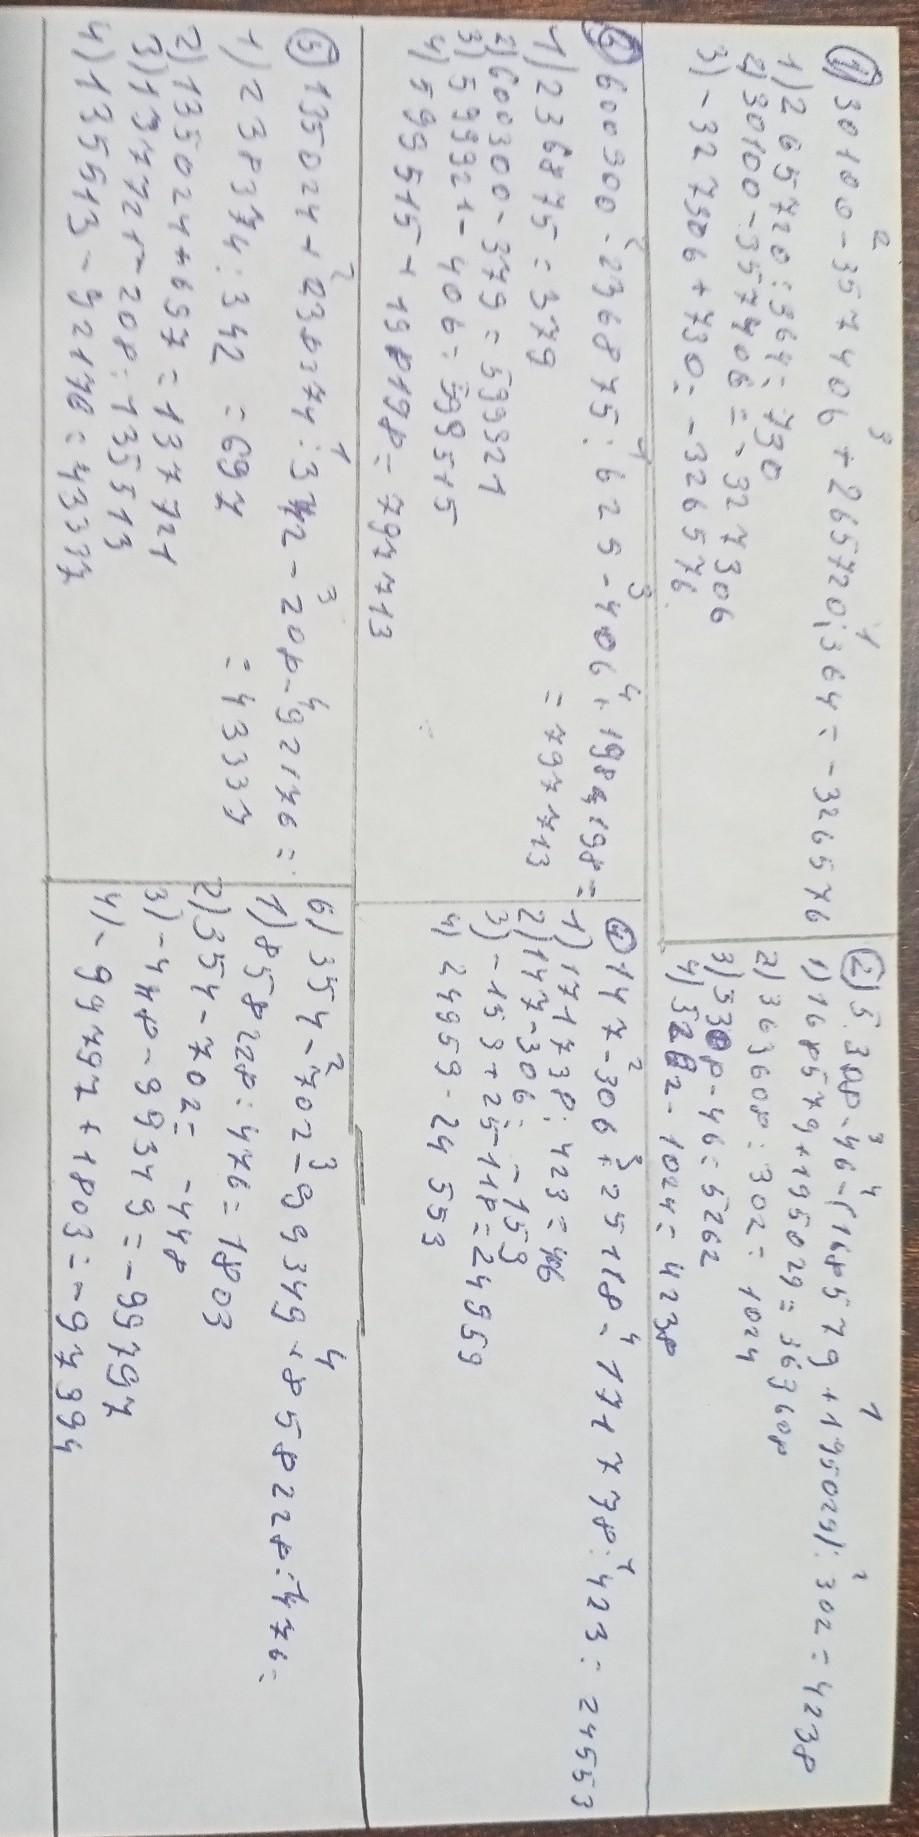 ① 30100 - 357406 + 265720 : 364 = -326576
1) 265720 : 364 = 730
2) 30100 - 357406 = -327306
3) -327306 + 730 = -326576
② 5308 - 46 - (168579 + 195029) : 302 = 4238
1) 168579 + 195029 = 363608
2) 363608 : 302 = 1024
3) 5308 - 46 = 5262
4) 5262 - 1024 = 4238
600300 - 236875 : 625 - 406 + 198198 =
= 797713
1) 236875 = 379
2) 600300 - 379 = 599921
3) 599921 - 406 = 599515
4) 599515 + 198198 = 797713
④ 147 - 306 + 25118 - 171738 : 423 = 24553
1) 171738 : 423 = 406
2) 147 - 306 = -159
3) -159 + 25118 = 24959
4) 24959 - 24553
⑤ 135024 + 238374 : 342 - 208 - 92176 =
= 43337
1) 238374 : 342 = 697
2) 135024 + 697 = 137721
3) 137721 - 208 = 135513
4) 135513 - 92176 = 43337
6) 354 - 702 - 99349 + 858228 : 476 =
1) 858228 : 476 = 1803
2) 354 - 702 = -448
3) -448 - 99349 = -99797
4) -99797 + 1803 = -97994